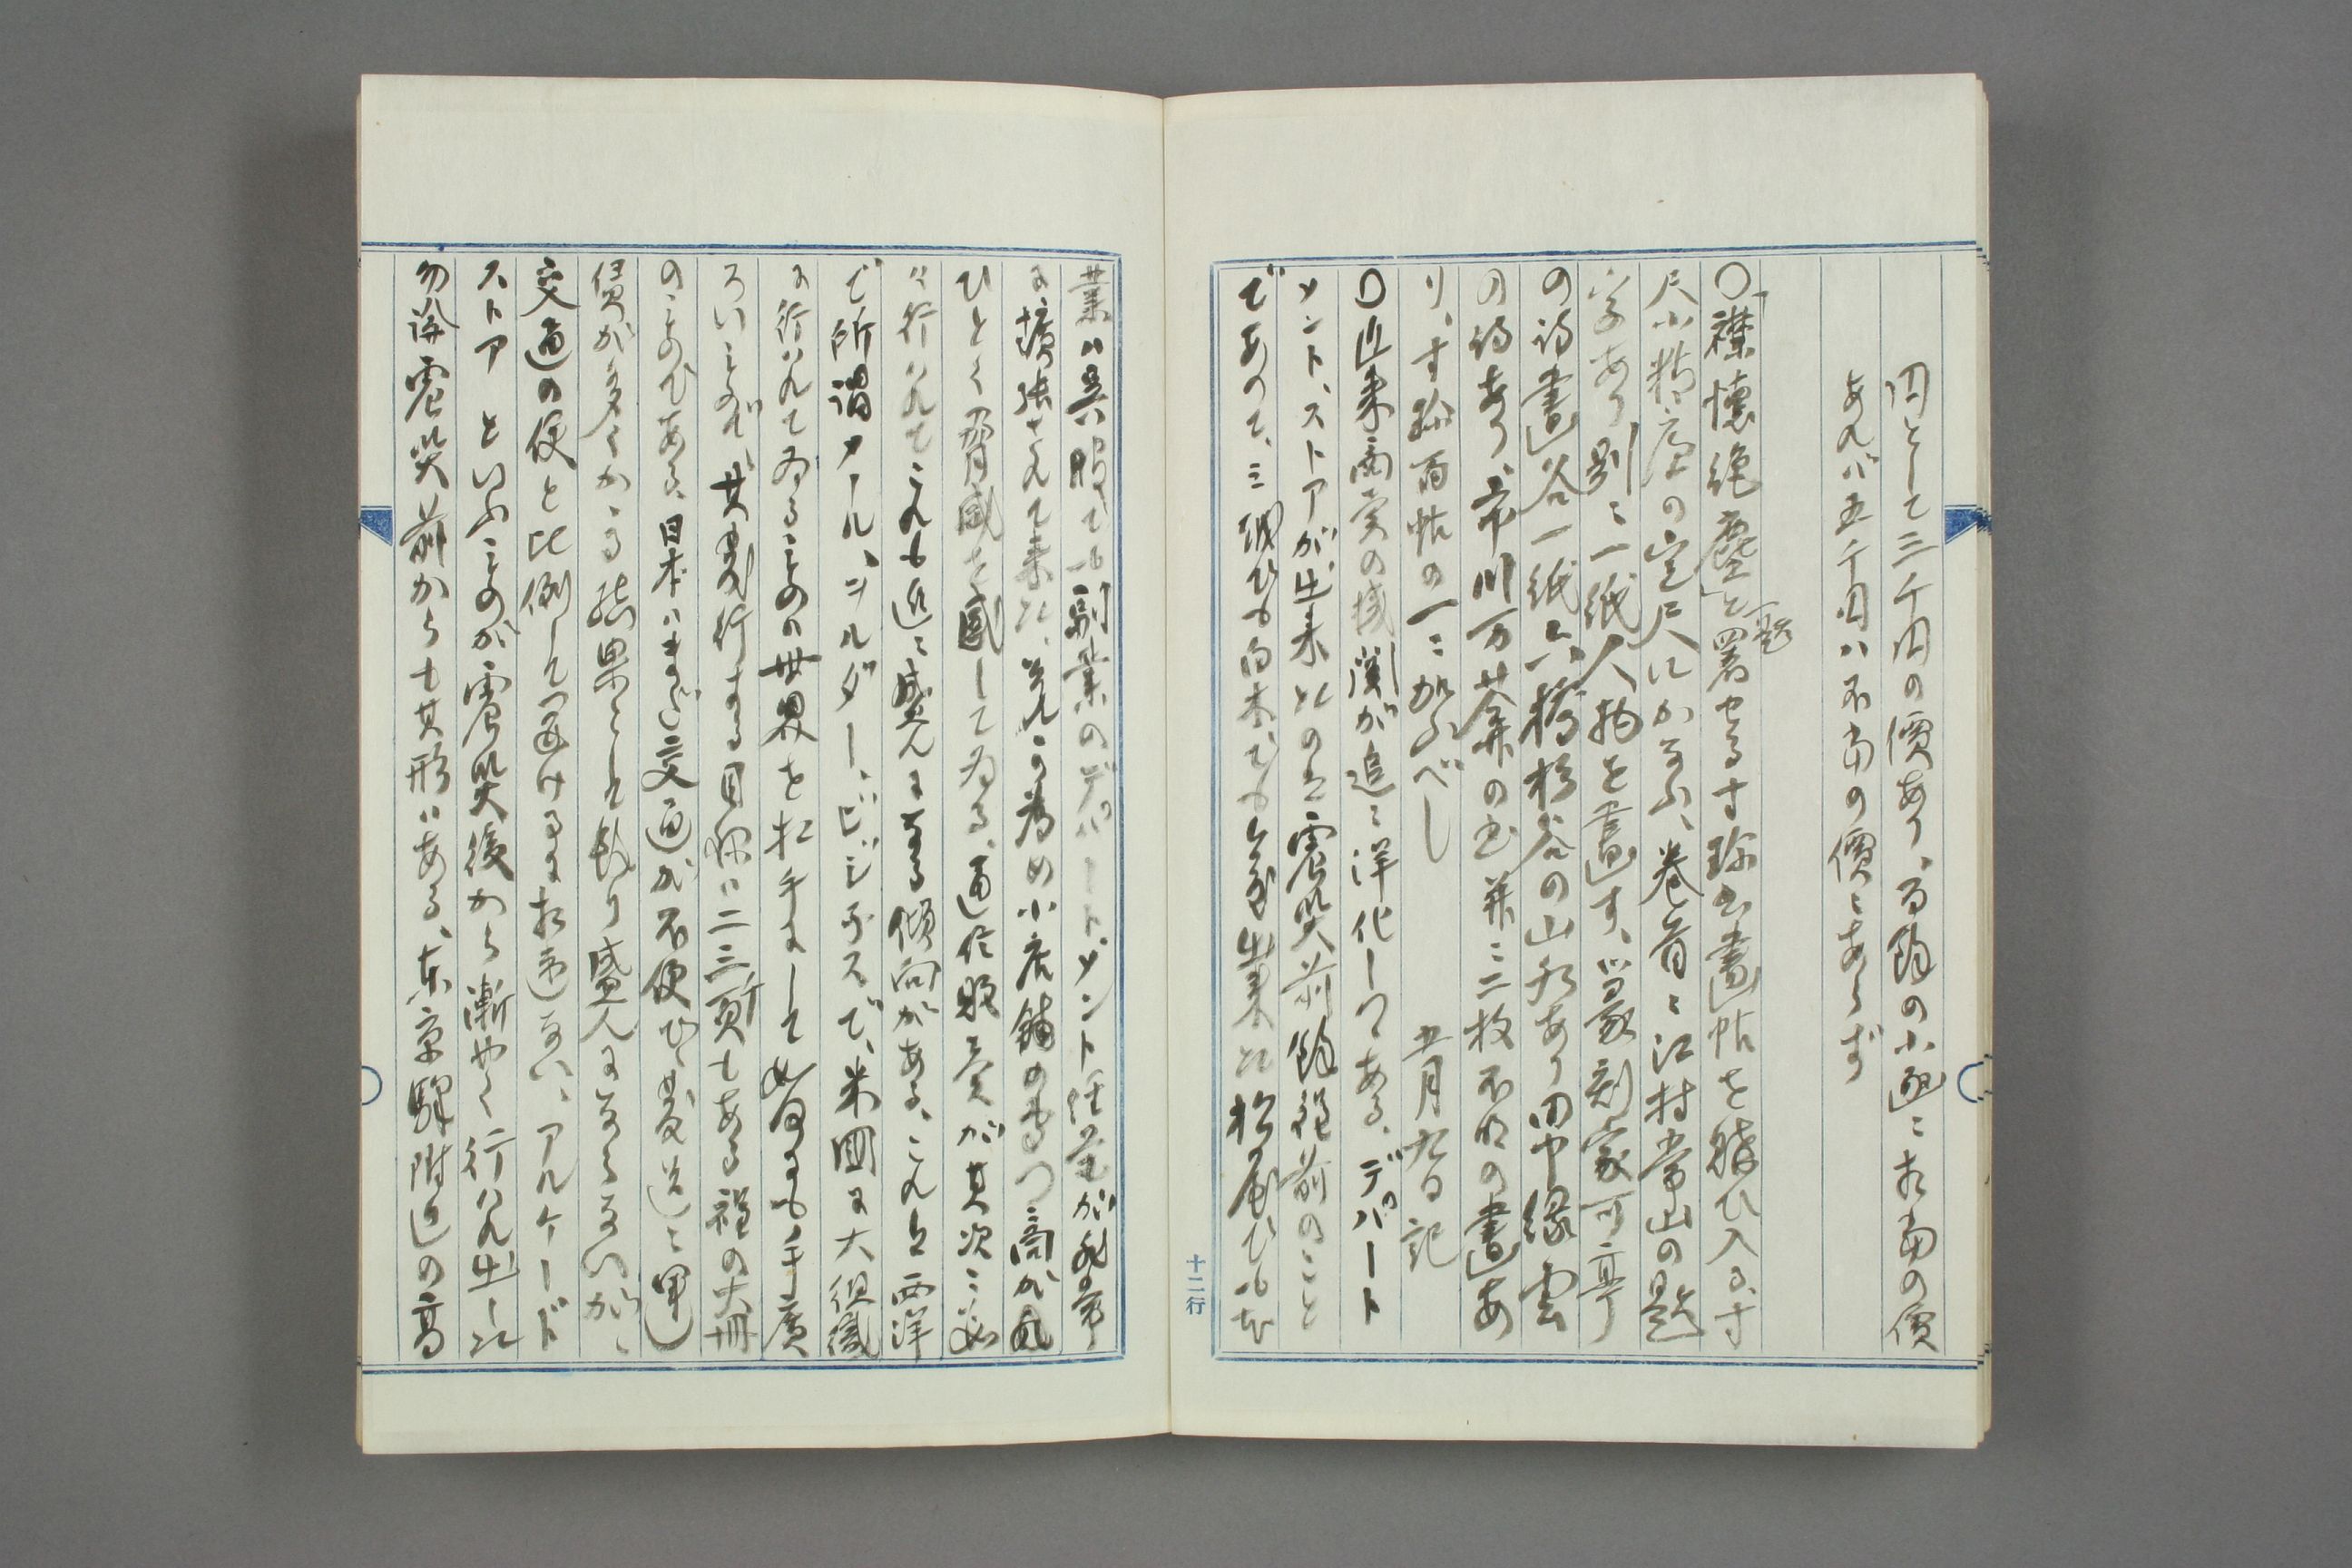 円として三千円の價あり、此種の小画に相當の價
あれバ五千円ハ不當の價にあらず
○「襟懐絶塵」と題
署せる寸珍書畫帖を購ひ入る、寸
尺小精廬の定尺にかなふ、巻首に江村常山の題
字あり別に一紙人物を畫す、篆刻家可亭
の詩書各一紙 杉谷の山水あり田中緑雲
の詩あり、市川万菴の書 并に二枚不明の畫あ
り、寸珍百帖の一に加ふべし
五月九日記
○近来商賣の機関が追々洋化しつゝある、デパート
メント、ストアが出来たのは震災前餘程前のこと
であつて、三越でも白木でも今度出来た松屋でも本
業ハ呉服でも副業のデパートメント経営が非常
に擴張されて来た、それが為め小店舗のもつ商が
ひどく脅威を感じてゐる、通信販賣が其次に
行ハれてこれも追々盛んになる傾向がある、これは西洋
で所謂メール、ヲルダー、ビジネスで、米國に大組織
に行ハれてゐることの世界を相手にして如何にも手廣
ろいものだ、其発行する目録ハ二三千頁もある程の大冊
のものである、日本ハまだ交通が不便で、発送に運
賃が多くかゝる結果として余り盛んにならないが、
交通の便と比例して開けるに相違ない、アルケード
ストア といふものが震災後から漸やく行ハれ出した
勿論震災前からも其形ハある、東京驛附近の高
十二行